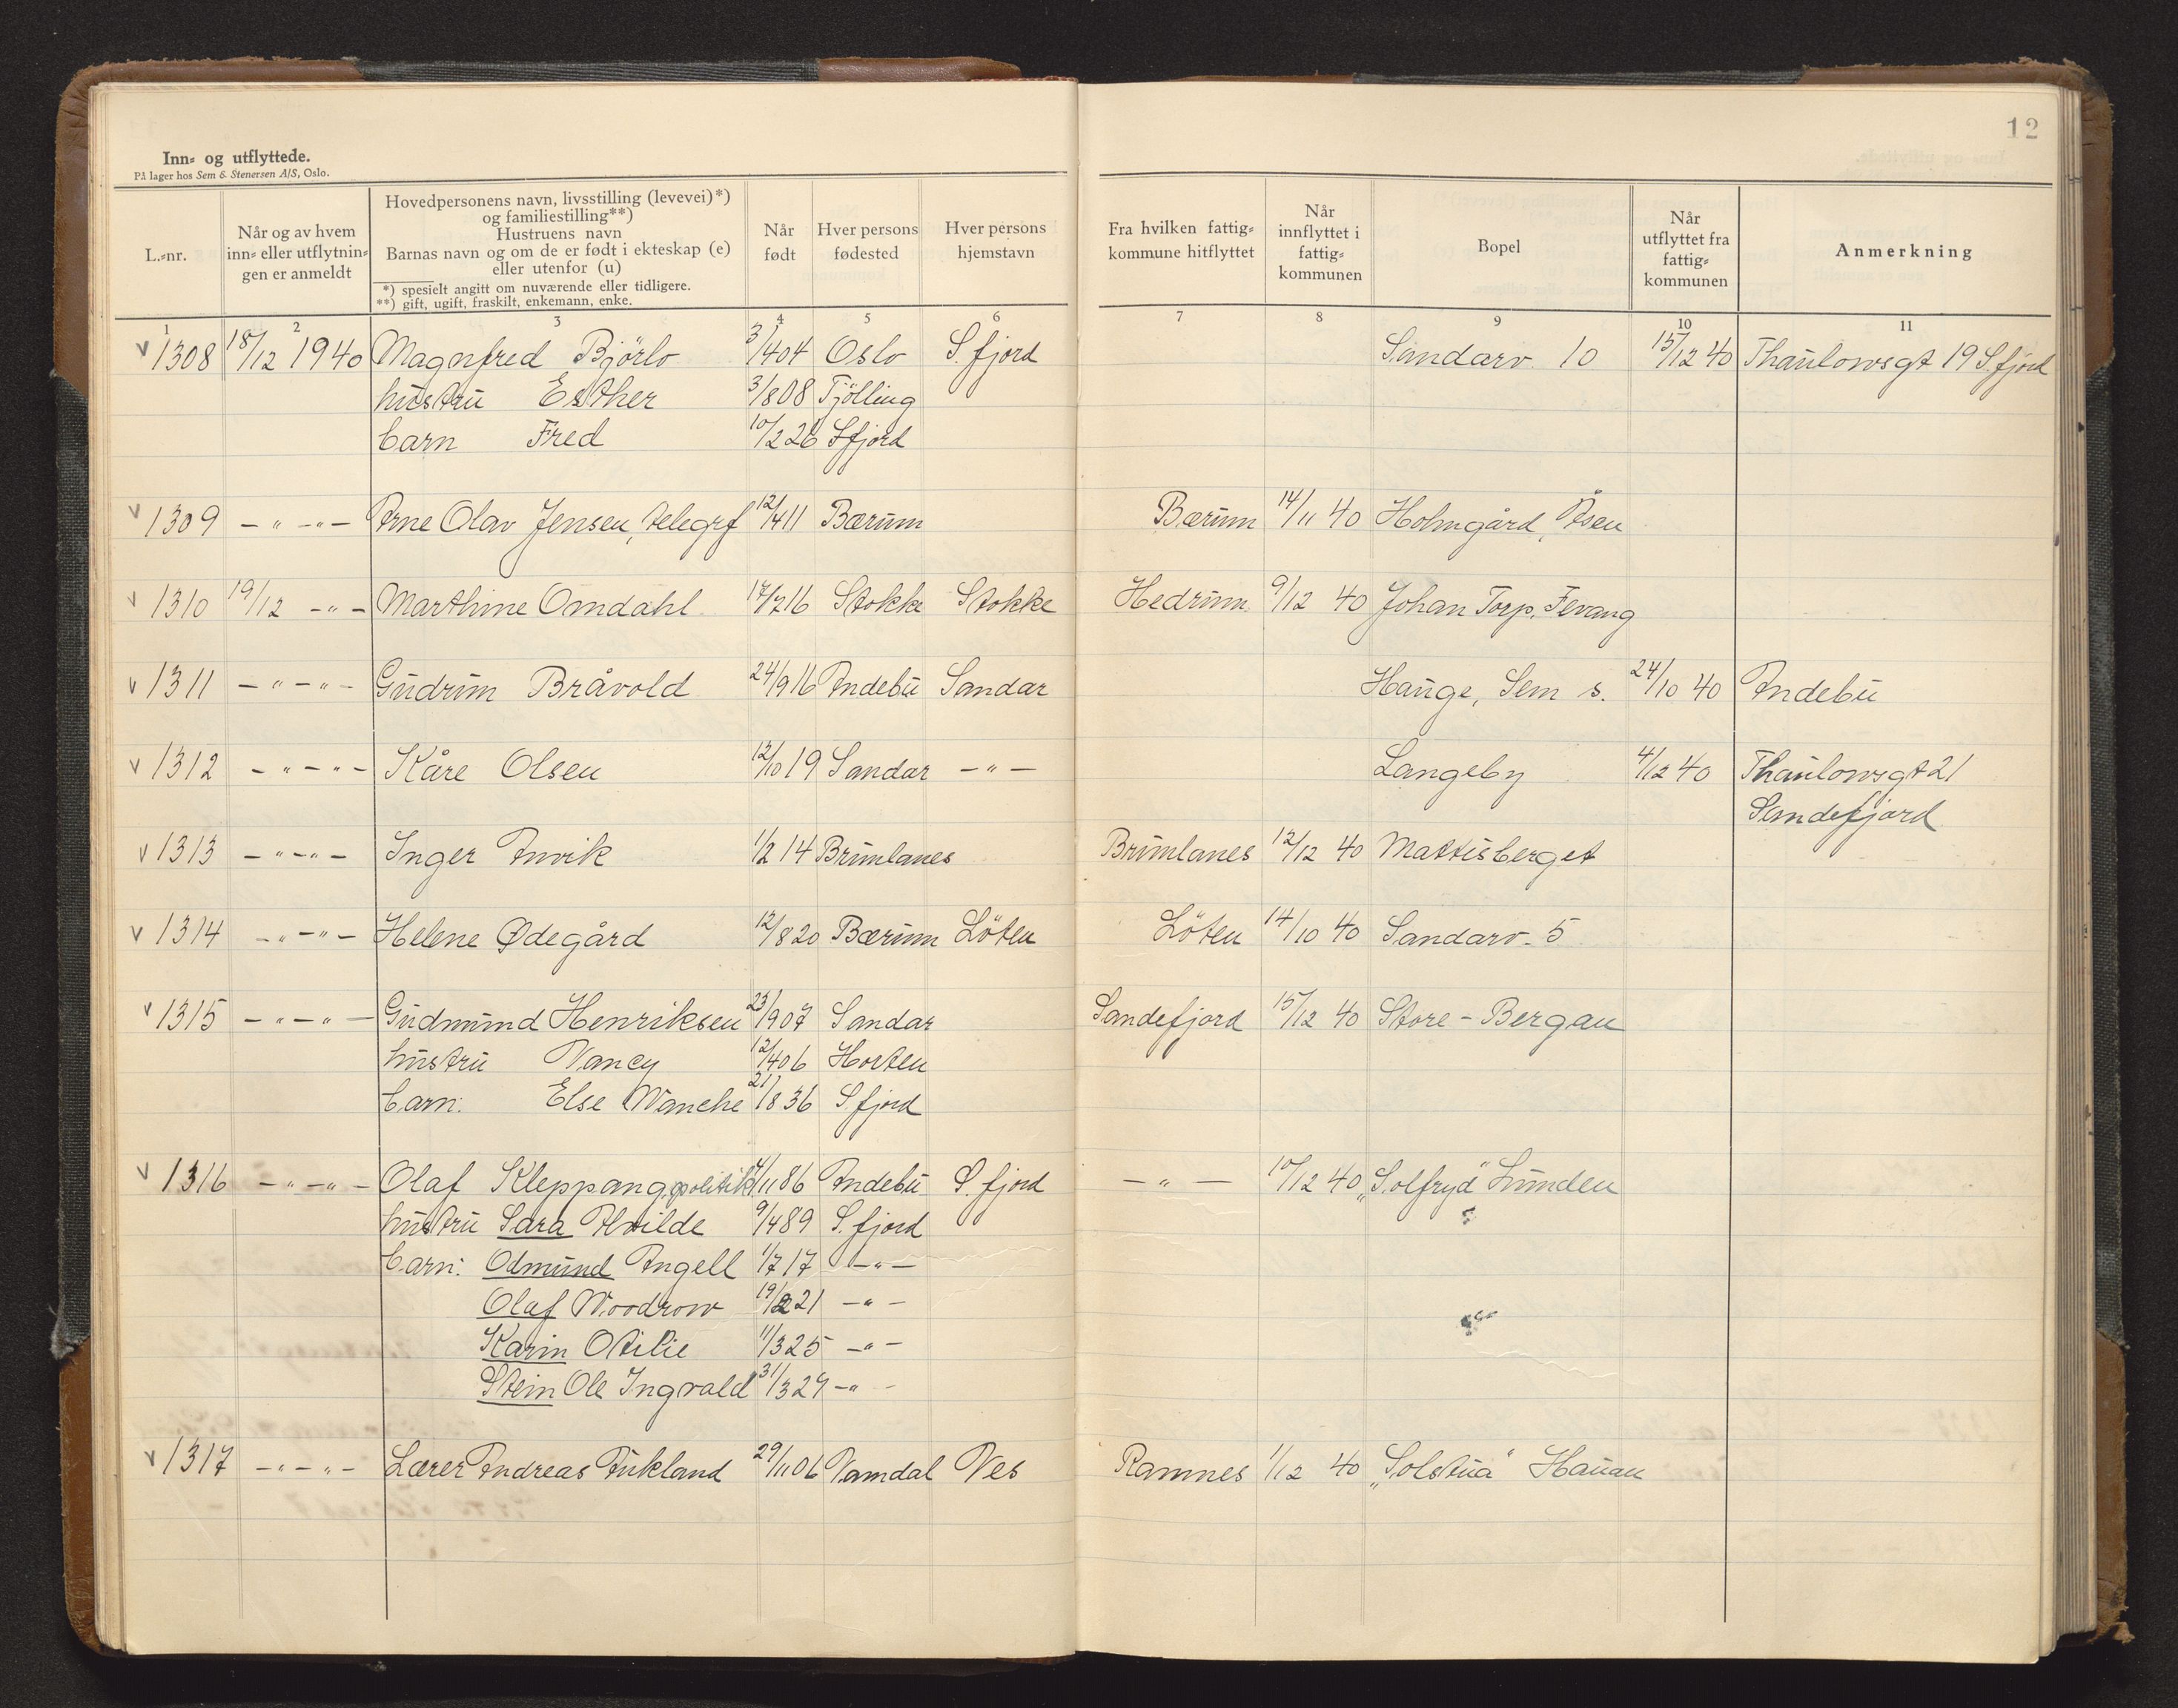 12
Inn= og utflyttede.
På lager hos Sem & Stenersen A/S, Oslo.
L.=nr.
Når og av hvem
inn= eller utflytnin=
gen er anmeldt
Hovedpersonens navn, livsstilling (levevei)*)
og familiestilling**)
Hustruens navn
Barnas navn og om de er født i ekteskap (e)
eller utenfor (u)
*) spesielt angitt om nuværende eller tidligere.
**) gift, ugift, fraskilt, enkemann, enke.
Når
født
Hver persons
fødested
Hver persons
hjemstavn
Fra hvilken fattig=
kommune hitflyttet
Når
innflyttet i
fattig=
kommunen
Bopel
Når
utflyttet fra
fattig=
kommunen
Anmerkning
1 2 3 4 5 6 7 8 9 10 11
v 1308 18/12 1940 Magnfred Björlo 3/4 04 Oslo S.fjord Sandarv. 10 15/12 40 Thaulowsgt 19 S.fjord
hustru Esther 3/8 08 Tjölling
barn Fred 10/2 26 Sfjord
v 1309 - " - " - Arne Olav Jensen, telegrf 12/4 11 Bærum Bærum 14/11 40 Holmgård, Åsen
v 1310 19/12 - " - Marthine Omdahl 17/2 16 Stokke Stokke Hedrum 9/12 40 Johan Torp, Fevang
v 1311 - " - " - Gudrun Bråvold 24/9 16 Andebu Sandar Hauge, Sem s. 24/10 40 Andebu
v 1312 - " - " - Kåre Olsen 12/10 19 Sandar - " - Langeby 4/12 40 Thaulowsgt 21
Sandefjord
v 1313 - " - " - Inger Anvik 1/2 14 Brunlanes Brunlanes 12/12 40 Mattisberget
v 1314 - " - " - Helene Ødegård 12/8 20 Bærum Löten Löten 14/10 40 Sandarv. 5
v 1315 - " - " - Gudmund Henriksen 23/9 07 Sandar Sandefjord 15/12 40 Store - Bergan
hustru Nancy 12/4 06 Horten
barn: Else Wanche 21/8 36 S.fjord
v 1316 - " - " - Olaf Kleppang, politik. /11 86 Andebu S.fjord - " - 10/12 40 "Solfryd" Lunden
hustru Sara Alvilde 9/4 89 S.fjord
barn: Odmund Angell 1/7 17 - " -
Olaf Woodrow 19/2 21 - " -
Karin Otilie 11/3 25 - " -
Stein Ole Ingvald 31/3 29 - " -
v 1317 - " - " - Lærer Andreas Aukland 29/11 06 Vamdal Nes Ramnes 1/12 40 "Solstua" Hauan